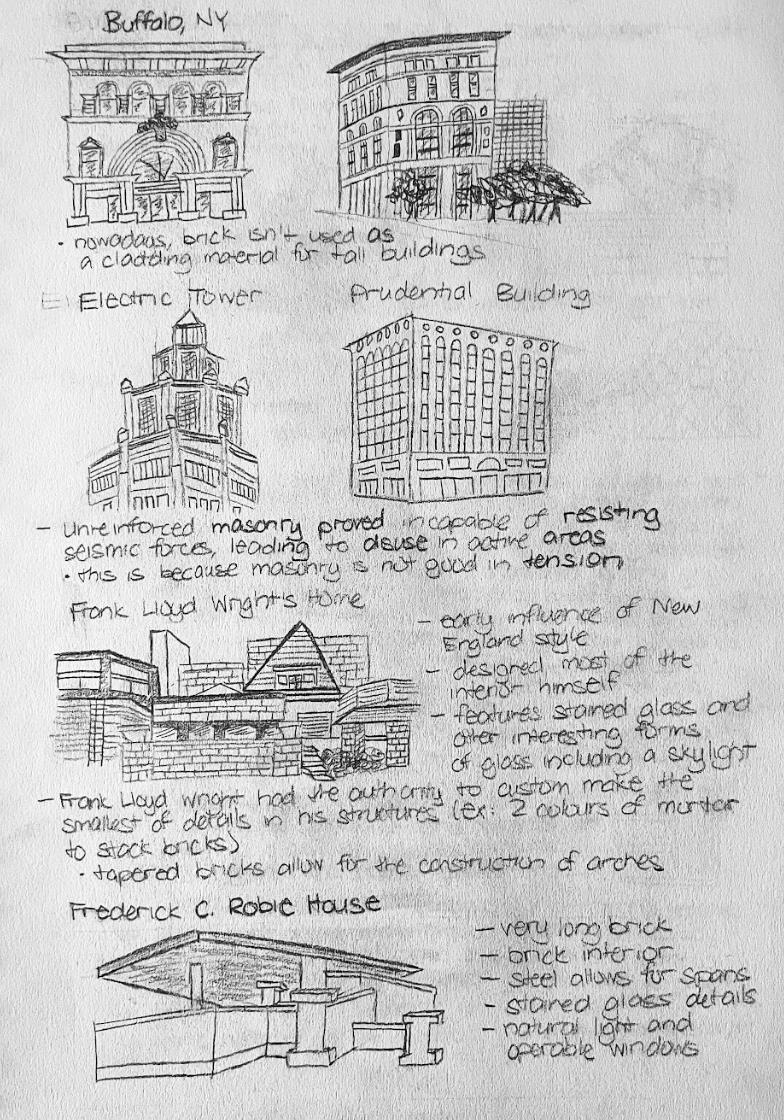 Buffalo, NY
• nowadays, brick isn't used as
a cladding material for tall buildings
Electric Tower
Prudential Building
- unreinforced masonry proved incapable of resisting
seismic forces, leading to disuse in active areas
• this is because masonry is not good in tension
Frank Lloyd Wright's Home
- early influence of New
England style
- designed most of the
interior himself
- features stained glass and
other interesting forms
of glass including a skylight
- Frank Lloyd Wright had the authority to custom make the
smallest of details in his structures (ex: 2 colours of mortar
to stack bricks)
• tapered bricks allow for the construction of arches
Frederick C. Robie House
- very long brick
- brick interior
- steel allows for spans
- stained glass details
- natural light and
operable windows